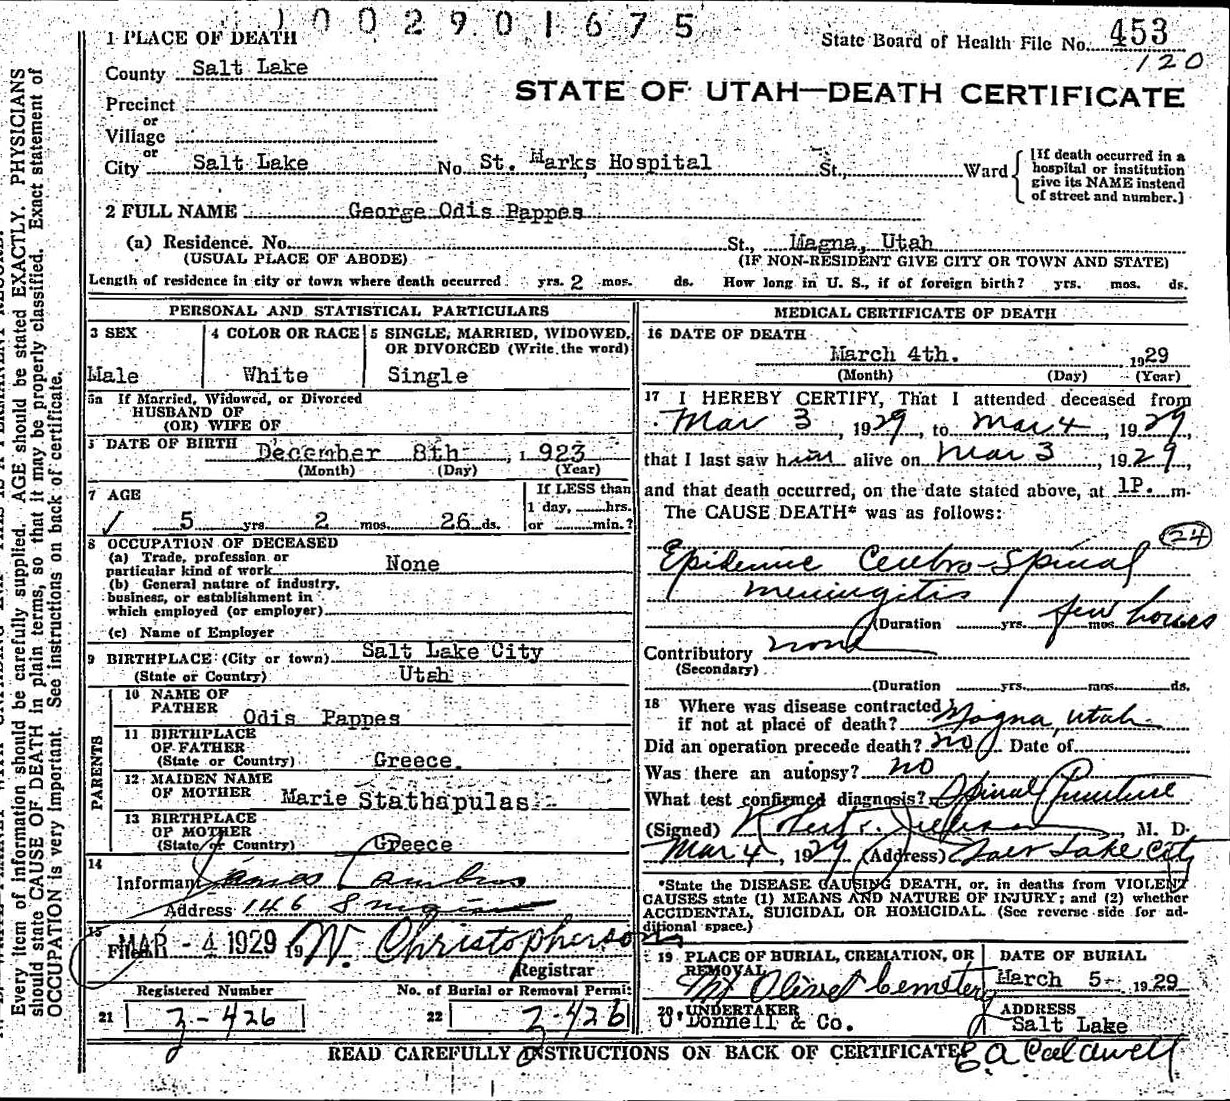 1002901675
1 PLACE OF DEATH
State Board of Health File No. 453
120
County Salt Lake
STATE OF UTAH—DEATH CERTIFICATE
Precinct
or
Village
or
City Salt Lake No. St. Marks Hospital St., Ward
[If death occurred in a hospital or institution give its NAME instead of street and number.]
2 FULL NAME George Odis Pappes
(a) Residence. No. St., Magna, Utah
(USUAL PLACE OF ABODE) (IF NON-RESIDENT GIVE CITY OR TOWN AND STATE)
Length of residence in city or town where death occurred yrs. 2 mos. ds. How long in U. S., if of foreign birth? yrs. mos. ds.
PERSONAL AND STATISTICAL PARTICULARS
3 SEX
Male
4 COLOR OR RACE
White
5 SINGLE, MARRIED, WIDOWED, OR DIVORCED (Write the word)
Single
5a If Married, Widowed, or Divorced
HUSBAND OF
(OR) WIFE OF
DATE OF BIRTH December 8th, 1923
(Month) (Day) (Year)
7 AGE
5 yrs. 2 mos. 26 ds.
If LESS than
1 day, hrs.
or min.?
8 OCCUPATION OF DECEASED
(a) Trade, profession or
particular kind of work None
(b) General nature of industry,
business, or establishment in
which employed (or employer)
(c) Name of Employer
9 BIRTHPLACE (City or town) Salt Lake City
(State or Country) Utah
PARENTS
10 NAME OF
FATHER
Odis Pappes
11 BIRTHPLACE
OF FATHER
(State or Country) Greece.
12 MAIDEN NAME
OF MOTHER Marie Stathapulas
13 BIRTHPLACE
OF MOTHER
(State or Country) Greece
14
Informant James Lambros
Address 146 S
15
Filed MAR - 4 1929 19 W. Christopherson
Registrar
Registered Number
21 3-426
No. of Burial or Removal Permit
22 3-426
MEDICAL CERTIFICATE OF DEATH
16 DATE OF DEATH
March 4th. 1929
(Month) (Day) (Year)
17 I HEREBY CERTIFY, That I attended deceased from
Mar 3, 1929, to Mar 4, 1929,
that I last saw him alive on Mar 3, 1929,
and that death occurred, on the date stated above, at 1P. m.
The CAUSE DEATH* was as follows:
24
Epidemic Cerebro-Spinal
meningitis
(Duration yrs. few mos. hours
Contributory none
(Secondary)
(Duration yrs. mos. ds.
18 Where was disease contracted
if not at place of death? Magna, Utah
Did an operation precede death? no Date of
Was there an autopsy? no
What test confirmed diagnosis? Spinal Puncture
(Signed) Robert, M. D.
Mar 4, 1929 (Address) Salt Lake City
*State the DISEASE CAUSING DEATH, or, in deaths from VIOLENT
CAUSES state (1) MEANS AND NATURE OF INJURY; and (2) whether
ACCIDENTAL, SUICIDAL OR HOMICIDAL. (See reverse side for ad-
ditional space.)
19 PLACE OF BURIAL, CREMATION, OR
REMOVAL
Mt Olivet Cemetery
DATE OF BURIAL
March 5- 1929
20 UNDERTAKER
O'Donnell & Co.
ADDRESS
Salt Lake
READ CAREFULLY INSTRUCTIONS ON BACK OF CERTIFICATE
E A Caldwell
Every item of information should be carefully supplied. AGE should be stated EXACTLY. PHYSICIANS
should state CAUSE OF DEATH in plain terms, so that it may be properly classified. Exact statement of
OCCUPATION is very important. See instructions on back of certificate.